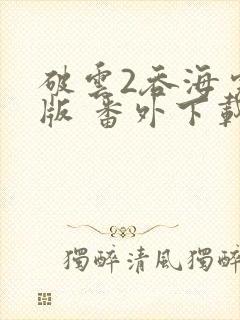 破雲2吞海
版 番外下載
獨醉清風獨醉